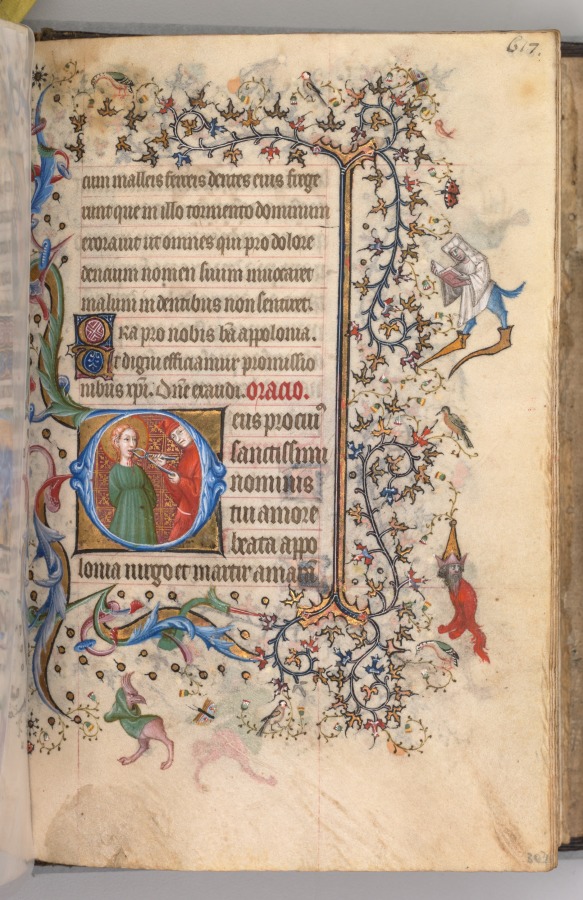 617.
cum malleis ferreis dentes eius frege
runt que in illo tormento dominum
exorauit ut omnes qui pro dolore
dencium nomen suum inuocaret
malum in dentibus non sentiret.
Ora pro nobis bā appolonia.
Et digni efficiamur promissio
nibus xp̄i. Dn̄e exaudi. oracio.
Deus pro cuiꝰ
sanctissimi
nominis
tui amore
beata appo
lonia uirgo et martir amara